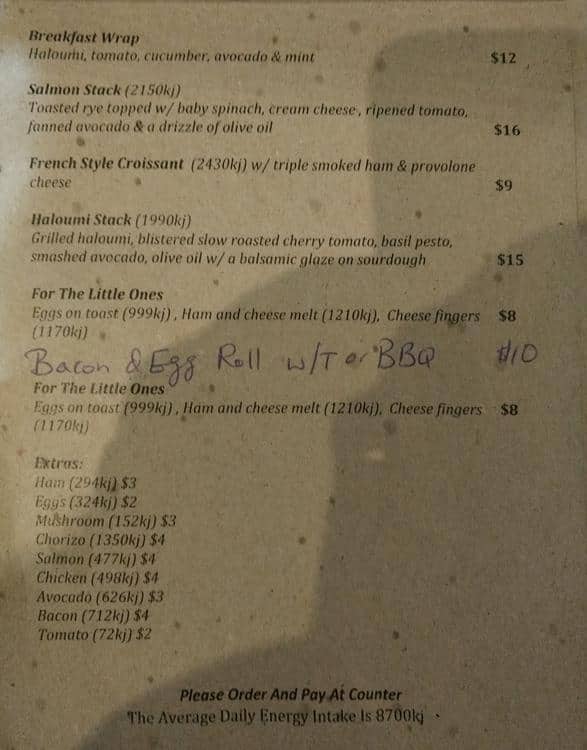 Breakfast Wrap
Haloumi, tomato, cucumber, avocado & mint $12
Salmon Stack (2150kj)
Toasted rye topped w/ baby spinach, cream cheese, ripened tomato,
fanned avocado & a drizzle of olive oil $16
French Style Croissant (2430kj) w/ triple smoked ham & provolone
cheese $9
Haloumi Stack (1990kj)
Grilled haloumi, blistered slow roasted cherry tomato, basil pesto,
smashed avocado, olive oil w/ a balsamic glaze on sourdough $15
For The Little Ones
Eggs on toast (999kj), Ham and cheese melt (1210kj), Cheese fingers $8
(1170kj)
Bacon & Egg Roll w/T or BBQ $10
For The Little Ones
Eggs on toast (999kj), Ham and cheese melt (1210kj), Cheese fingers $8
(1170kj)
Extras:
Ham (294kj) $3
Eggs (324kj) $2
Mushroom (152kj) $3
Chorizo (1350kj) $4
Salmon (477kj) $4
Chicken (498kj) $4
Avocado (626kj) $3
Bacon (712kj) $4
Tomato (72kj) $2
Please Order And Pay At Counter
The Average Daily Energy Intake Is 8700kj